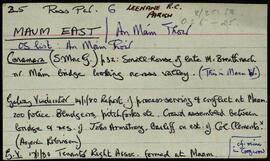 25 Ross Par. 6 LEENANE R.C. PARISH
MAUM EAST An Mám Thoir
OS list: An Mám Thoir
Connemara (S. MacG) / p.32: Small-house of late M. Breathnach
nr. Maam bridge looking across valley.
Galway Vindicator 14/1/80 Report of process-serving & conflict at Maam
200 police. Blindgers, pitchforks etc. Crowd assembled between
bridge & res. of John Armstrong, Bailiff on est. of Col. Clements.
(Angela Robinson)
G.V. 17/1/80 Tenants Right Assoc. formed at Maam.